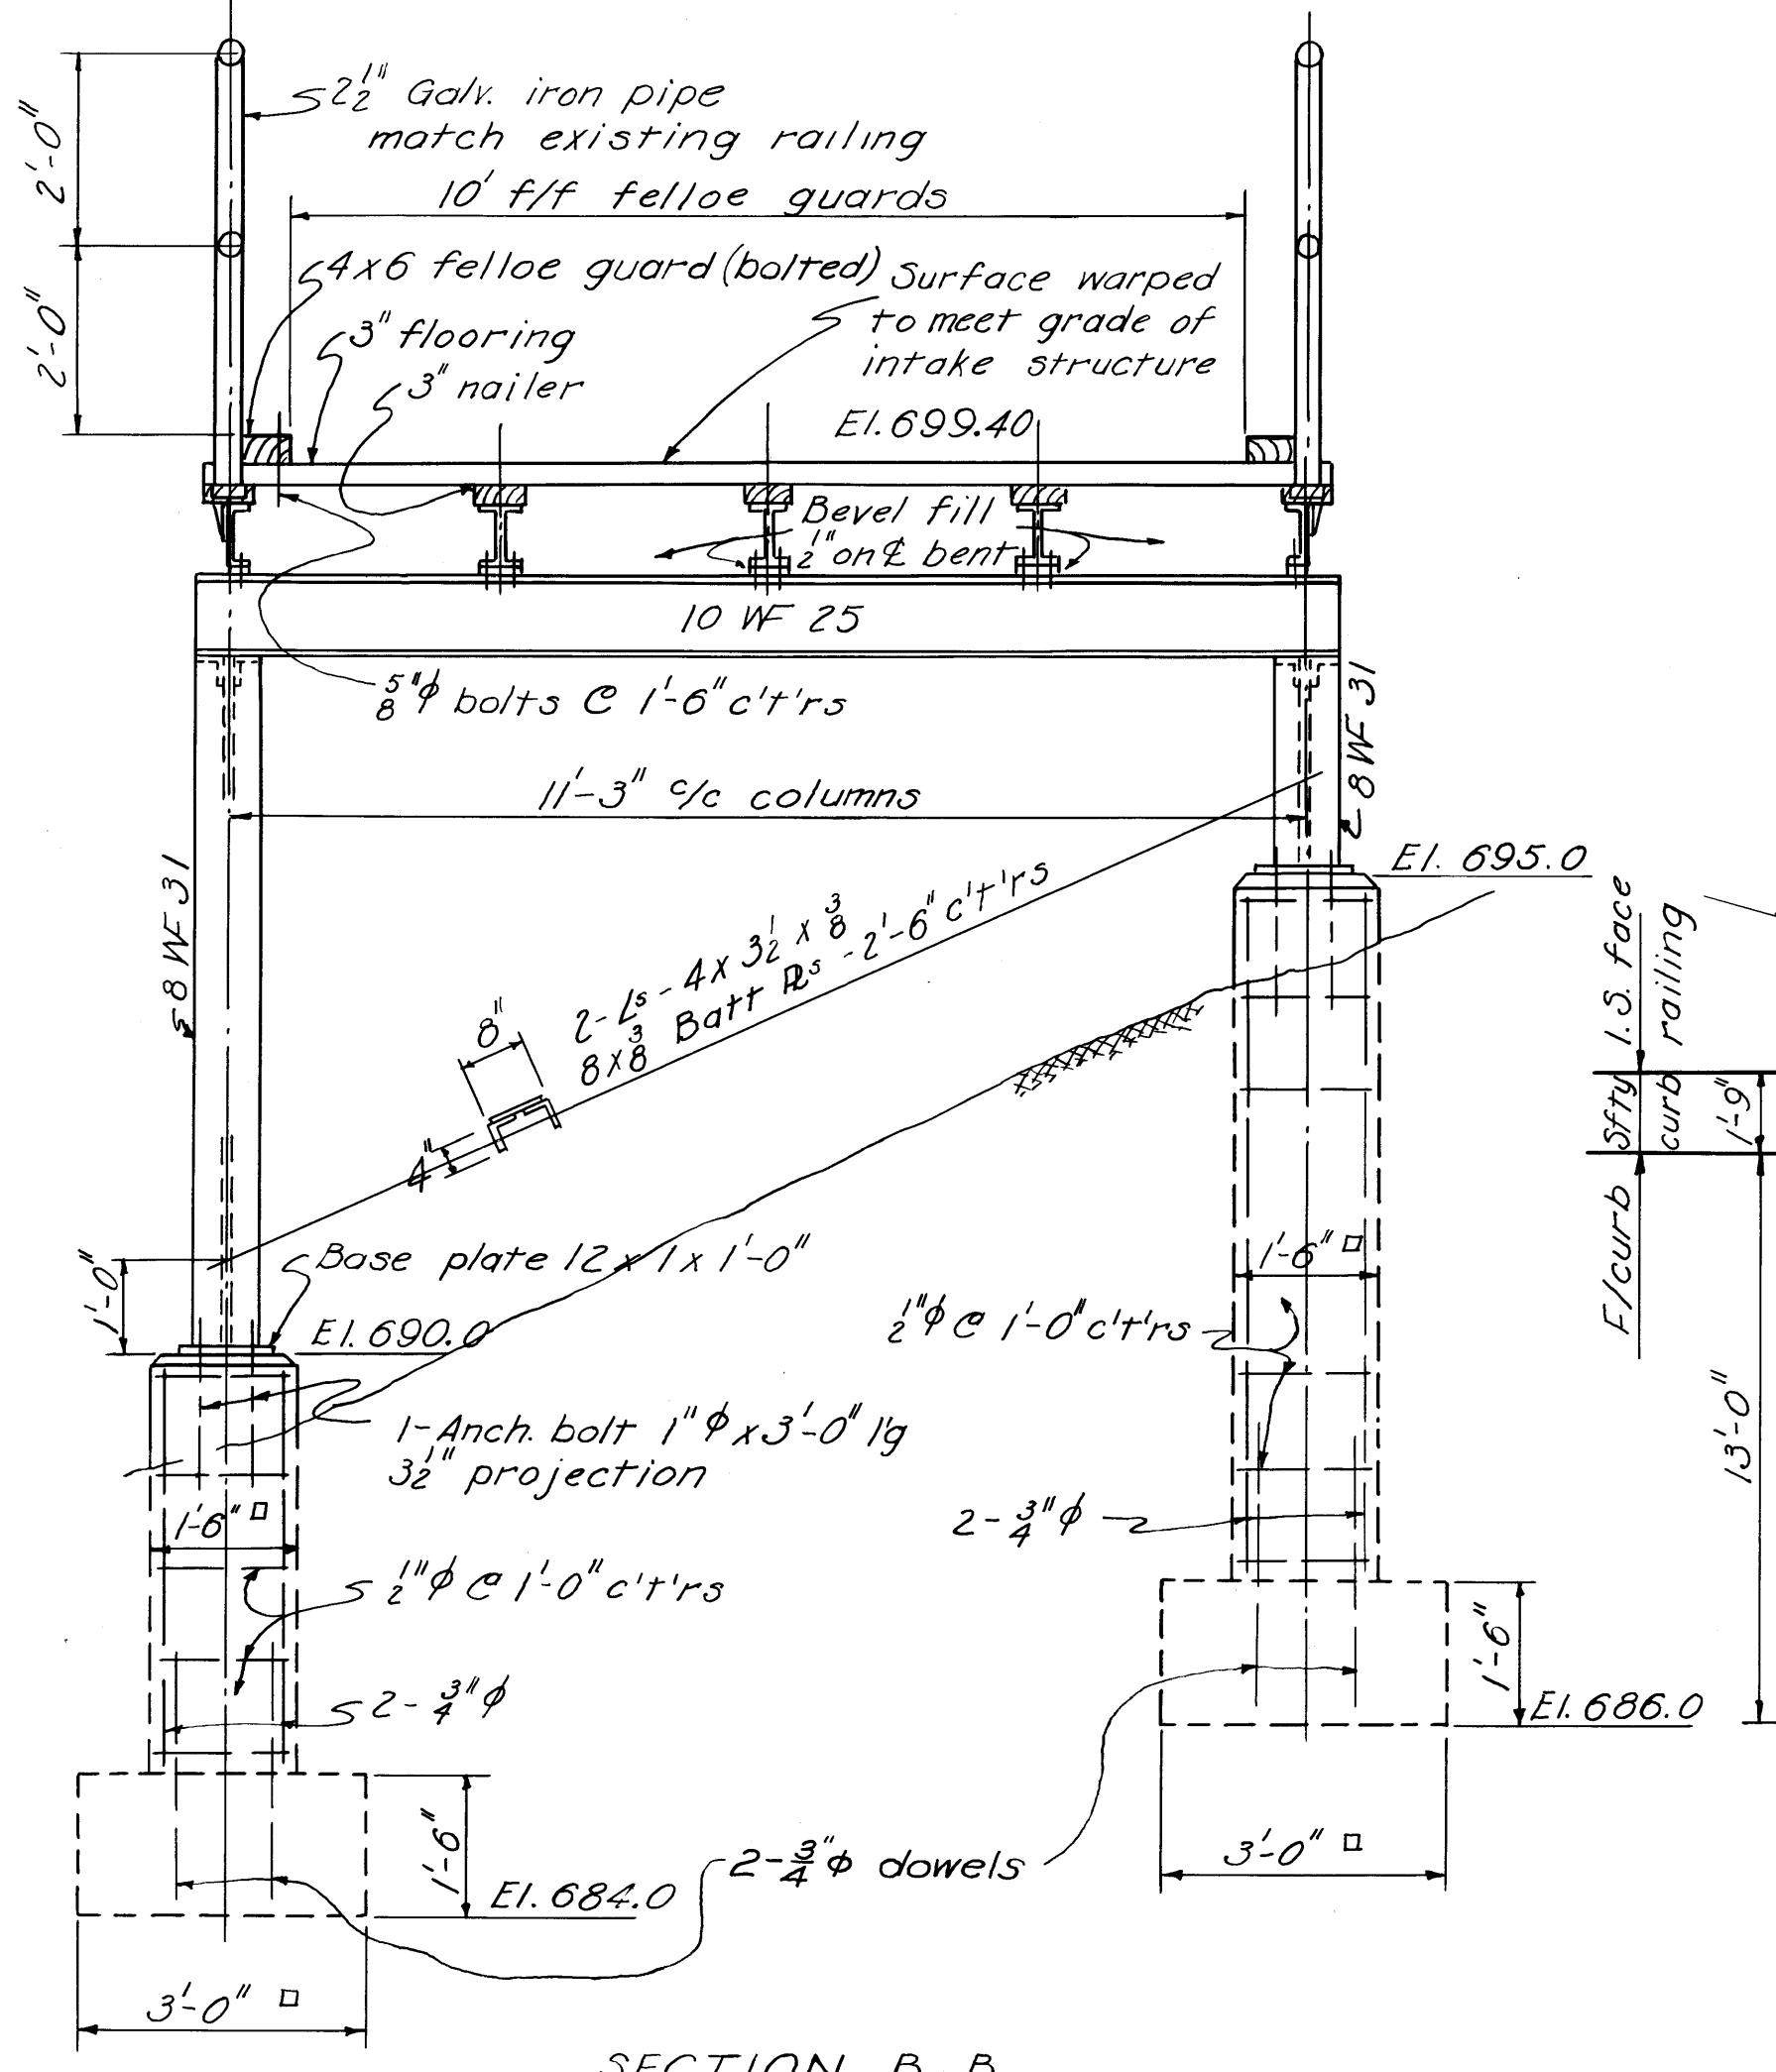 2'-0"
2'-0"
2 1/2" Galv. iron pipe
match existing railing
10' f/f felloe guards
4x6 felloe guard (bolted)
Surface warped
to meet grade of
intake structure
3" flooring
3" nailer
El. 699.40
Bevel fill
1/2" on ℄ bent
10 WF 25
5/8"ϕ bolts @ 1'-6" c't'rs
8 WF 31
11'-3" c/c columns
8 WF 31
El. 695.0
2-Ls - 4 x 3 1/2 x 3/8
8 x 3/8 Batt ℞s - 2'-6" c't'rs
8"
4"
I.S. face
railing
Sfty
curb
1'-9"
F/curb
13'-0"
1'-0"
Base plate 12 x 1 x 1'-0"
El. 690.0
1'-6" □
1/2"ϕ @ 1'-0" c't'rs
1-Anch. bolt 1"ϕ x 3'-0" l'g
3 1/2" projection
1'-6" □
2-3/4"ϕ
1/2"ϕ @ 1'-0" c't'rs
1'-6"
2-3/4"ϕ
El. 686.0
1'-6"
2-3/4"ϕ dowels
3'-0" □
El. 684.0
3'-0" □
SECTION B-B